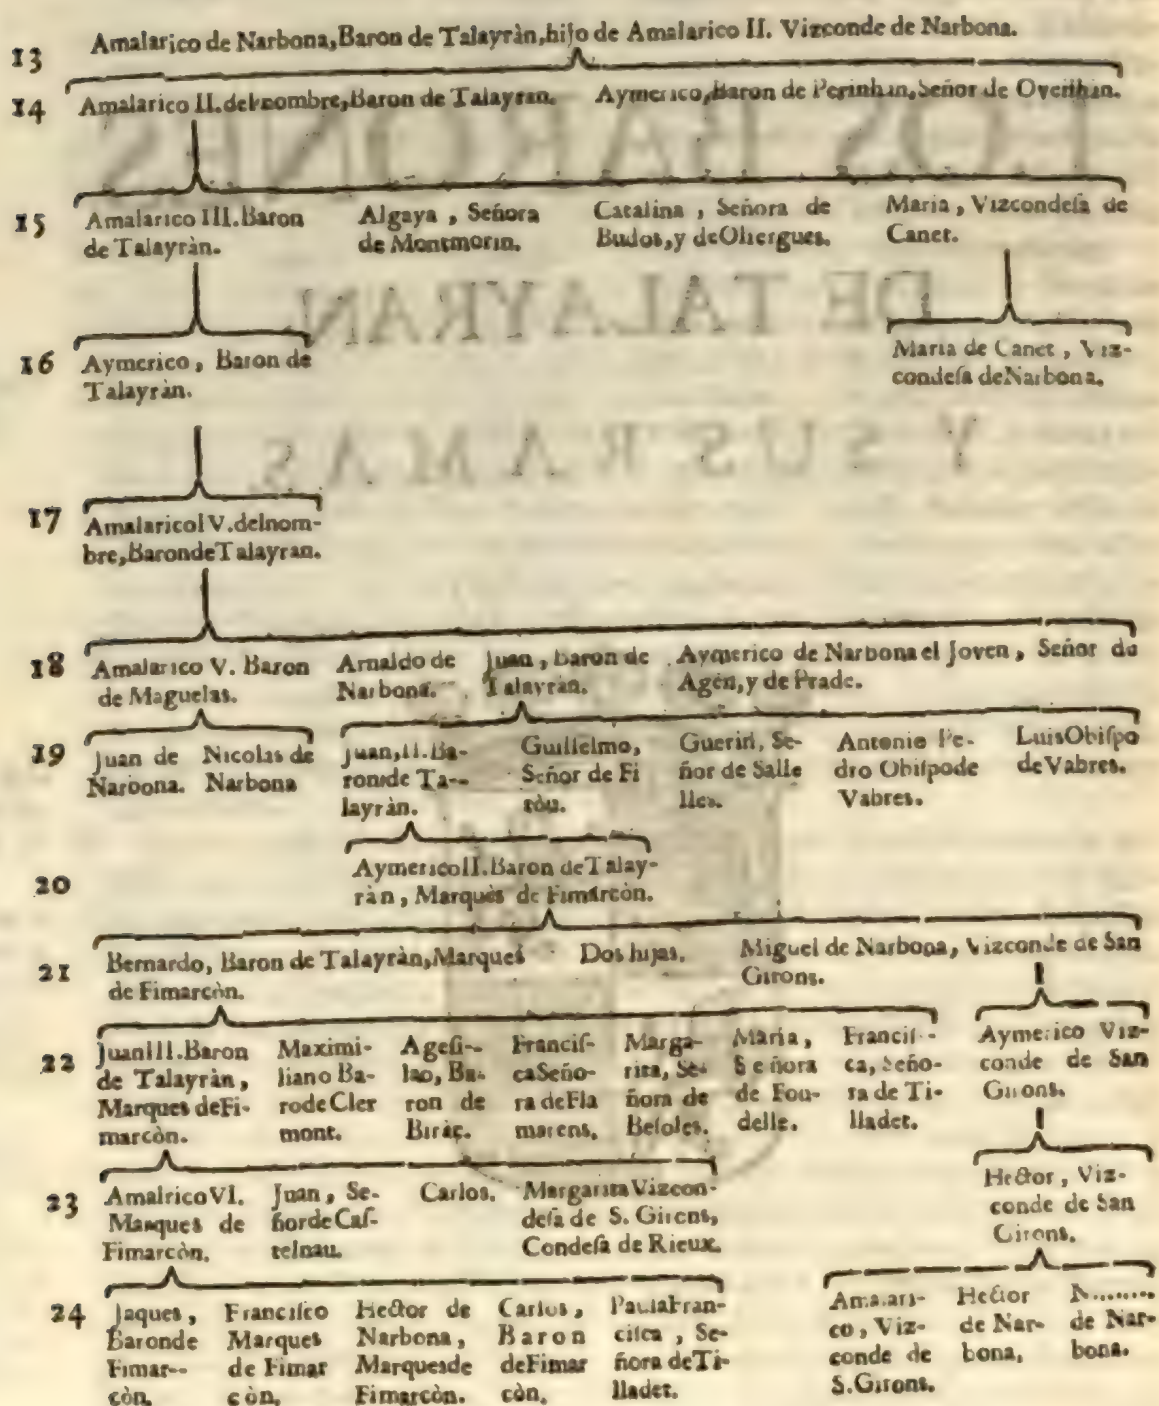 13 Amalarico de Narbona, Baron de Talayràn, hijo de Amalarico II. Vizconde de Narbona.
14 Amalarico II. del nombre, Baron de Talayran. Aymerico, Baron de Perinhan, Señor de Overihan.
15 Amalarico III. Baron
de Talayràn.
Algaya , Señora
de Montmorin.
Catalina , Señora de
Budos, y de Ohergues.
Maria , Vizcondeſa de
Canet.
16 Aymerico , Baron de
Talayràn.
Maria de Canet , Viz-
condeſa de Narbona.
17 Amalarico IV. del nom-
bre, Baron de Talayran.
18 Amalarico V. Baron
de Maguelas.
Arnaldo de
Narbona.
Juan , Baron de
Talayràn.
Aymerico de Narbona el Joven , Señor de
Agen, y de Prade.
19 Juan de
Narbona.
Nicolas de
Narbona
Juan, II. Ba-
ron de Ta--
layràn.
Guillelmo,
Señor de Fi
tòu.
Guerin, Se-
ñor de Salle
lles.
Antonio Pe-
dro Obiſpo de
Vabres.
Luis Obiſpo
de Vabres.
20 Aymerico II. Baron de Talay-
ràn , Marquès de Fimarcòn.
21 Bernardo, Baron de Talayràn, Marques
de Fimarcòn.
Dos hijas.
Miguel de Narbona, Vizconde de San
Girons.
22 Juan III. Baron
de Talayràn ,
Marques de Fi-
marcòn.
Maximi-
liano Ba-
ro de Cler
mont.
Ageſi--
lao, Ba-
ron de
Biràc.
Franciſ-
ca Seño-
ra de Fla
marens,
Marga-
rita, Se-
ñora de
Beſoles.
Maria ,
Señora
de Fou-
delle.
Franciſ--
ca, Seño-
ra de Ti-
lladet.
Aymerico Viz-
conde de San
Girons.
23 Amalrico VI.
Marques de
Fimarcòn.
Juan , Se-
ñor de Caſ-
telnau.
Carlos.
Margarita Vizcon-
deſa de S. Girons,
Condeſa de Rieux.
Hector , Viz-
conde de San
Girons.
24 Jaques ,
Baron de
Fimar--
còn.
Franciſco
Marques
de Fimar
còn.
Hector de
Narbona ,
Marques de
Fimarcòn.
Carlos ,
Baron
de Fimar
còn.
Paula Fran-
ciſca , Se-
ñora de Ti-
lladet.
Amalari-
co , Viz-
conde de
S. Girons.
Hector
de Nar-
bona,
N.........
de Nar-
bona.